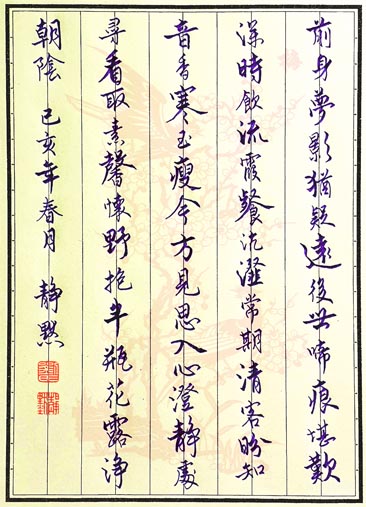 前身夢影猶疑遠後世啼痕堪歎
深時飲流霞餐沆瀣常期清客盼知
音香寒玉瘦今方見思入心澄静處
尋看取素馨懷野抱半瓶花露浄
朝陰 己亥年春月 静默